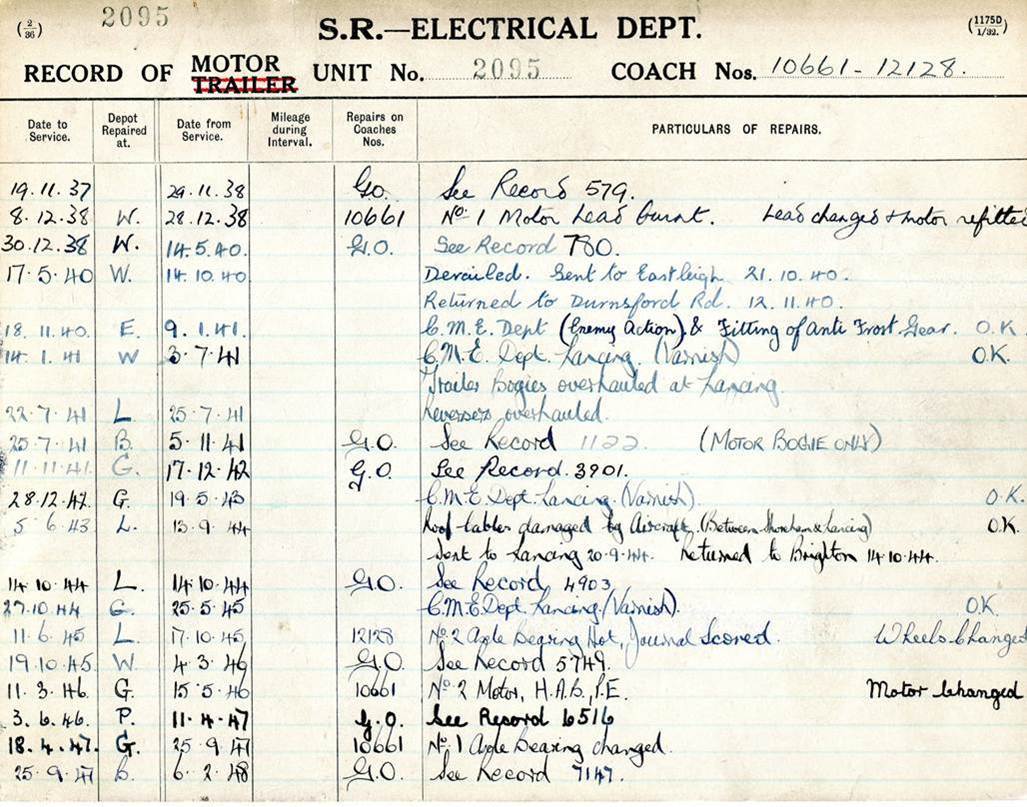 (2/36) 2095 S.R.—ELECTRICAL DEPT. (1175D 1/32.)
RECORD OF MOTOR TRAILER UNIT No. 2095 COACH Nos. 10661 - 12128.
Date to Service. Depot Repaired at. Date from Service. Mileage during Interval. Repairs on Coaches Nos. PARTICULARS OF REPAIRS.
19.11.37 29.11.38 G.O. See Record 579.
8.12.38 W. 28.12.38 10661 No. 1 Motor Lead burnt. Lead changed & motor refitted
30.12.38 W. 14.5.40. G.O. See Record 780.
17.5.40 W. 14.10.40. Derailed. Sent to Eastleigh 21.10.40.
Returned to Durnsford Rd. 12.11.40.
18.11.40. E. 9.1.41. C.M.E. Dept (Enemy Action) & Fitting of Anti Frost Gear. O.K.
14.1.41 W 3.7.41 C.M.E. Dept. Lancing. (Varnish) O.K.
Trailer Bogies overhauled at Lancing.
22.7.41 L. 25.7.41 Reversers overhauled.
25.7.41 B. 5.11.41 G.O. See Record 1122. (MOTOR BOGIE ONLY)
11.11.41. G. 17.12.42 G.O. See Record. 3901.
28.12.42. G. 19.5.43 C.M.E. Dept. Lancing. (Varnish). O.K.
5.6.43 L. 13.9.44 Roof cables damaged by Aircraft. (Between Shoreham & Lancing) O.K.
Sent to Lancing 20.9.44. Returned to Brighton 14.10.44.
14.10.44 L. 14.10.44 G.O. See Record 4903.
27.10.44 G. 25.5.45 C.M.E. Dept. Lancing. (Varnish). O.K.
11.6.45 L. 17.10.45 12128 No. 2 Axle bearing Hot, Journal Scored. Wheels Changed
19.10.45. W. 4.3.46 G.O. See Record 5749.
11.3.46. G. 15.5.46 10661 No. 2 Motor, H.A.B., P.E. Motor Changed
3.6.46. P. 11.4.47 G.O. See Record 6516
18.4.47. G. 25.9.47 10661 No. 1 Axle bearing changed.
25.9.47 B. 6.2.48 G.O. See Record 7147.